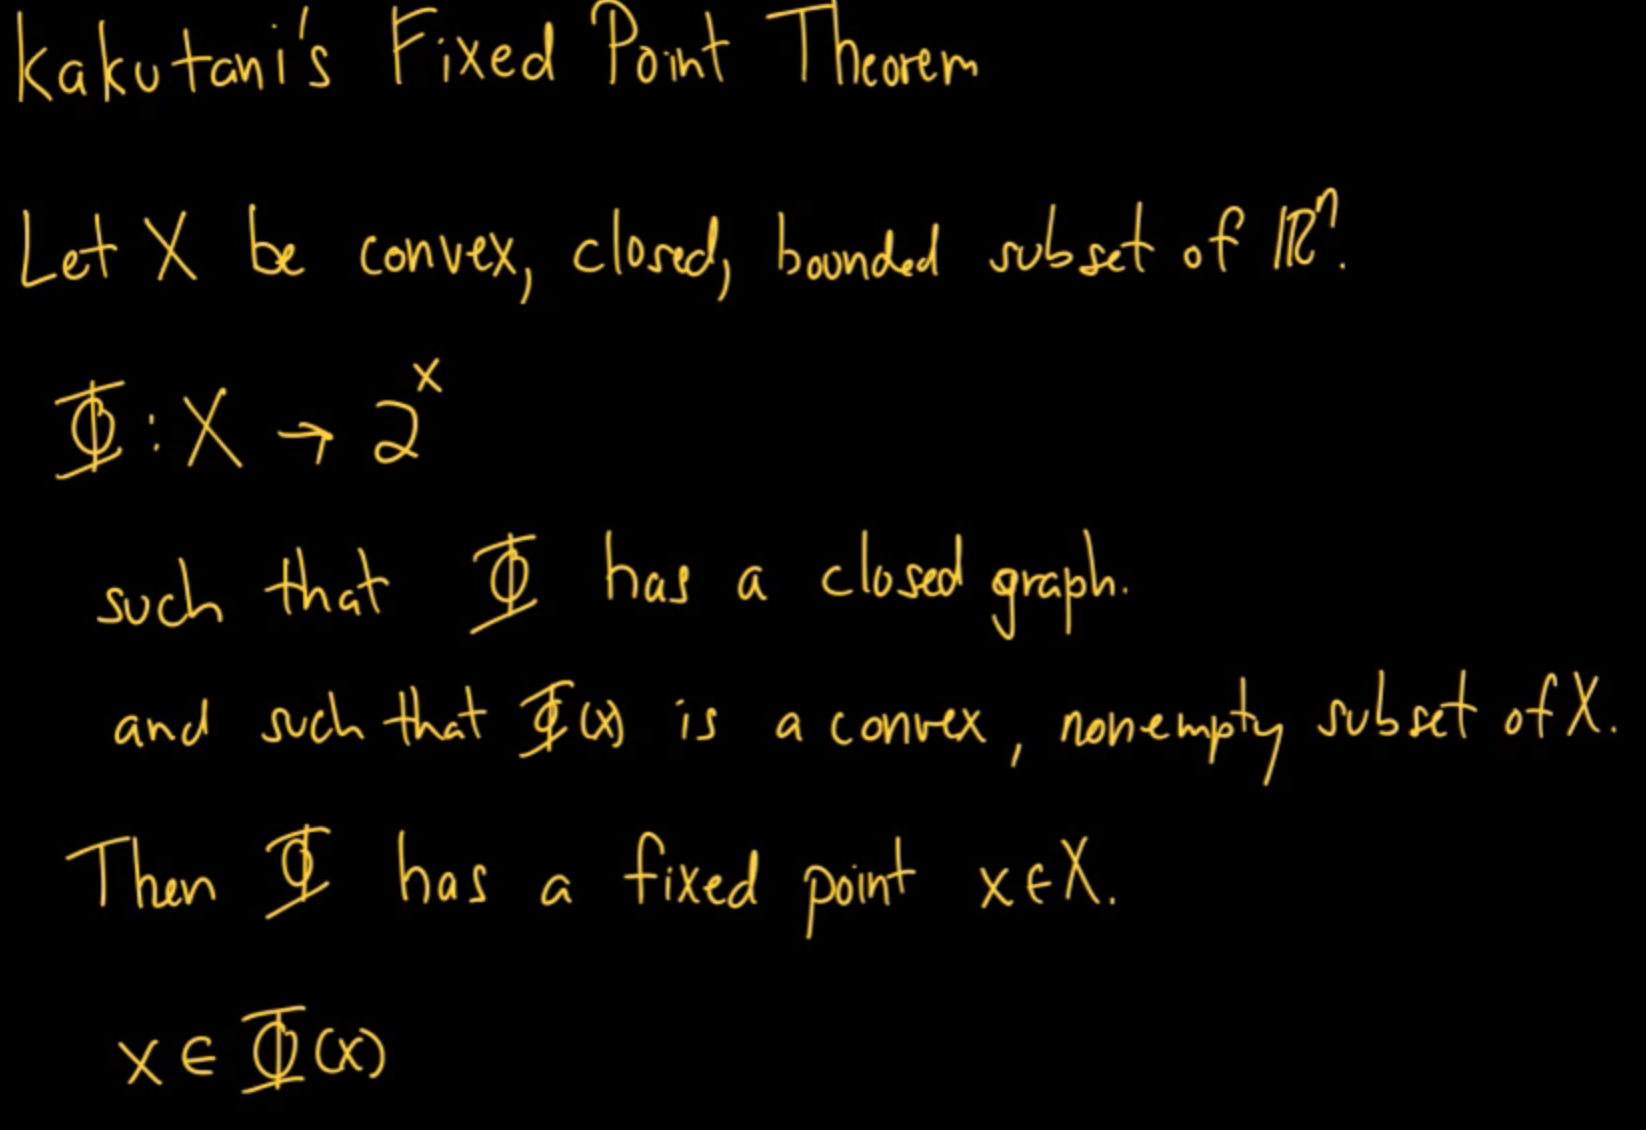 Kakutani's Fixed Point Theorem
Let X be convex, closed, bounded subset of ℝⁿ.
Φ : X → 2ˣ
such that Φ has a closed graph.
and such that Φ(x) is a convex, nonempty subset of X.
Then Φ has a fixed point x ∈ X.
x ∈ Φ(x)